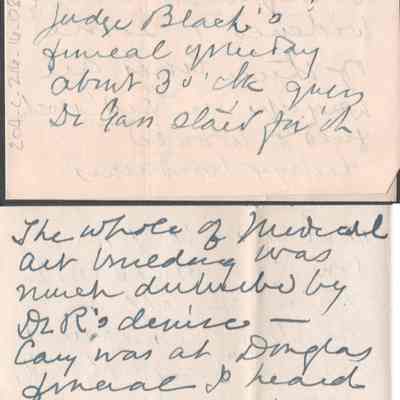 Judge Black's
funeral yesterday
about 3 o'ck guess
Dr Gass staid for it
The whole of Medical
Art building was
much disturbed by
Dr R's demise —
Cary was at Douglas
funeral I heard